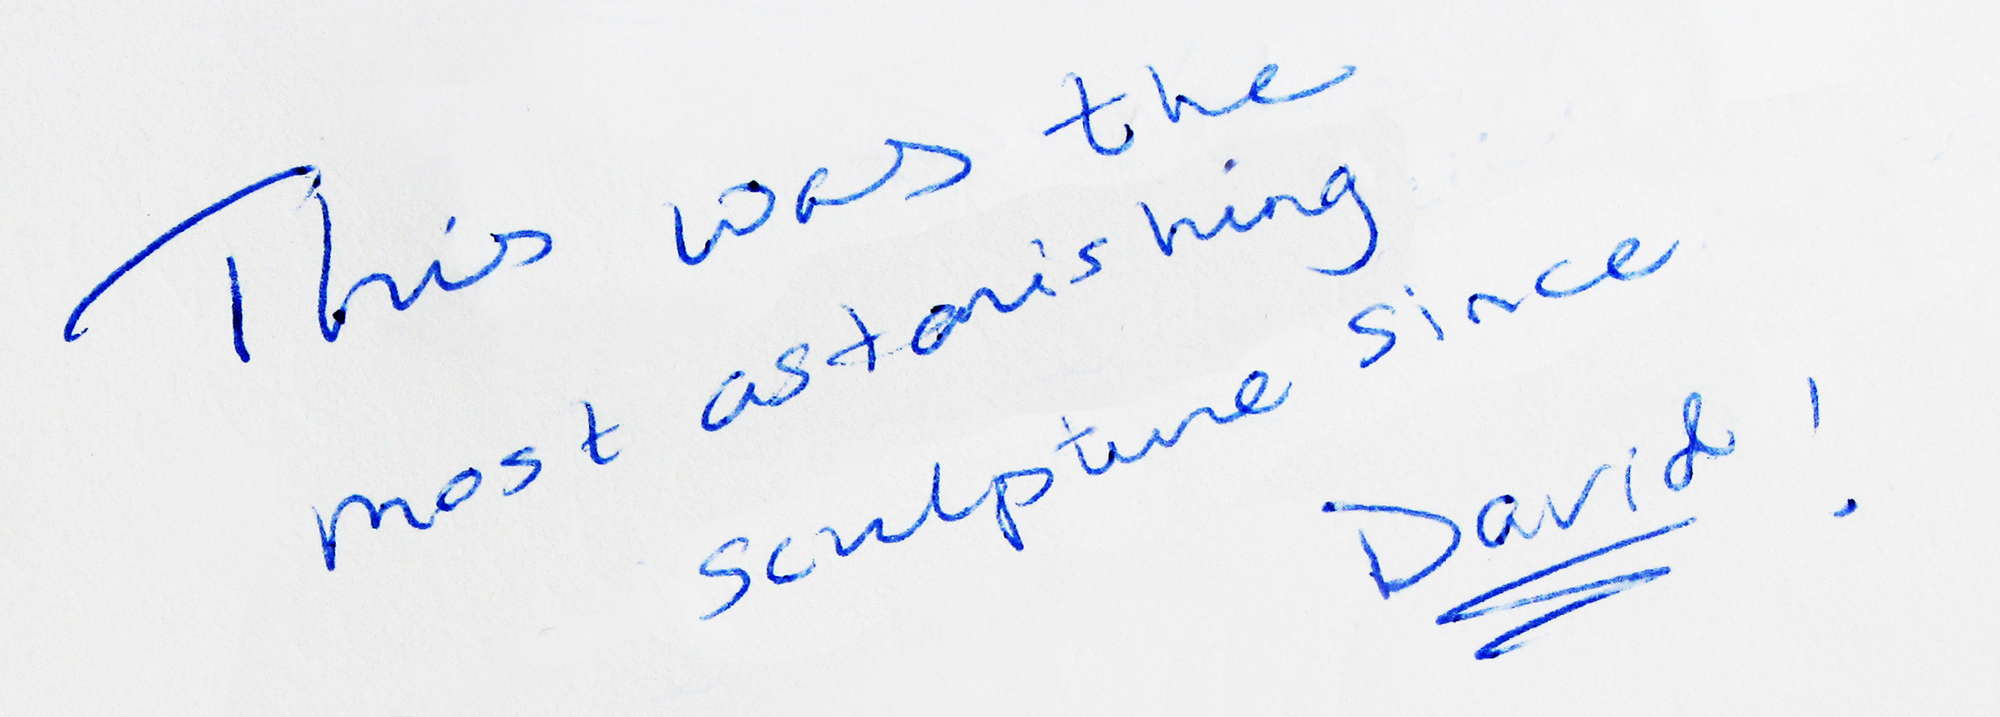 This was the
most astonishing
sculpture since
David!